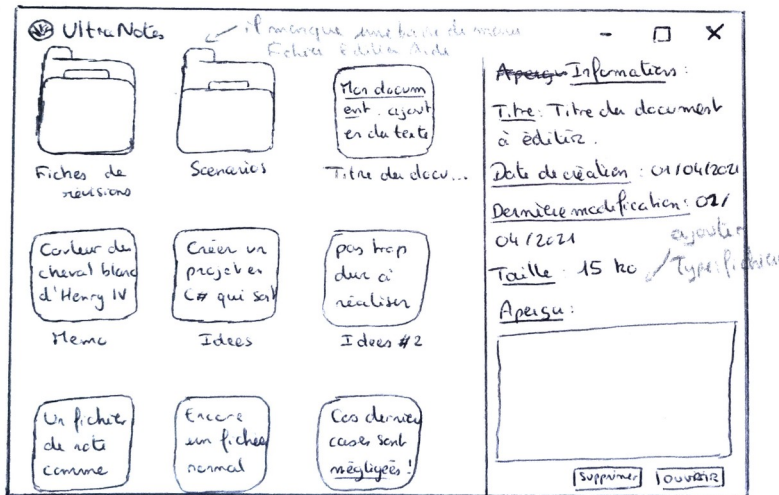 UltraNotes
il manque une barre de menu
Fichier Edition Aide
Fiches de
révisions
Scenarios
Mon docum
ent. ajout
er du texte
Titre du docu...
Couleur du
cheval blanc
d'Henry IV
Memo
Créer un
projet en
C# qui soit
Idees
pas trop
dur à
réaliser
Idees #2
Un fichier
de note
comme
Encore
un fichier
normal
Ces dernières
cases sont
négligées !
Aperçu Informations :
Titre : Titre du document
à éditer.
Date de création : 01/04/2021
Dernière modification : 02/
04/2021
Taille : 15 ko
ajouter
Type: fichier
Aperçu :
Supprimer
OUVRIR